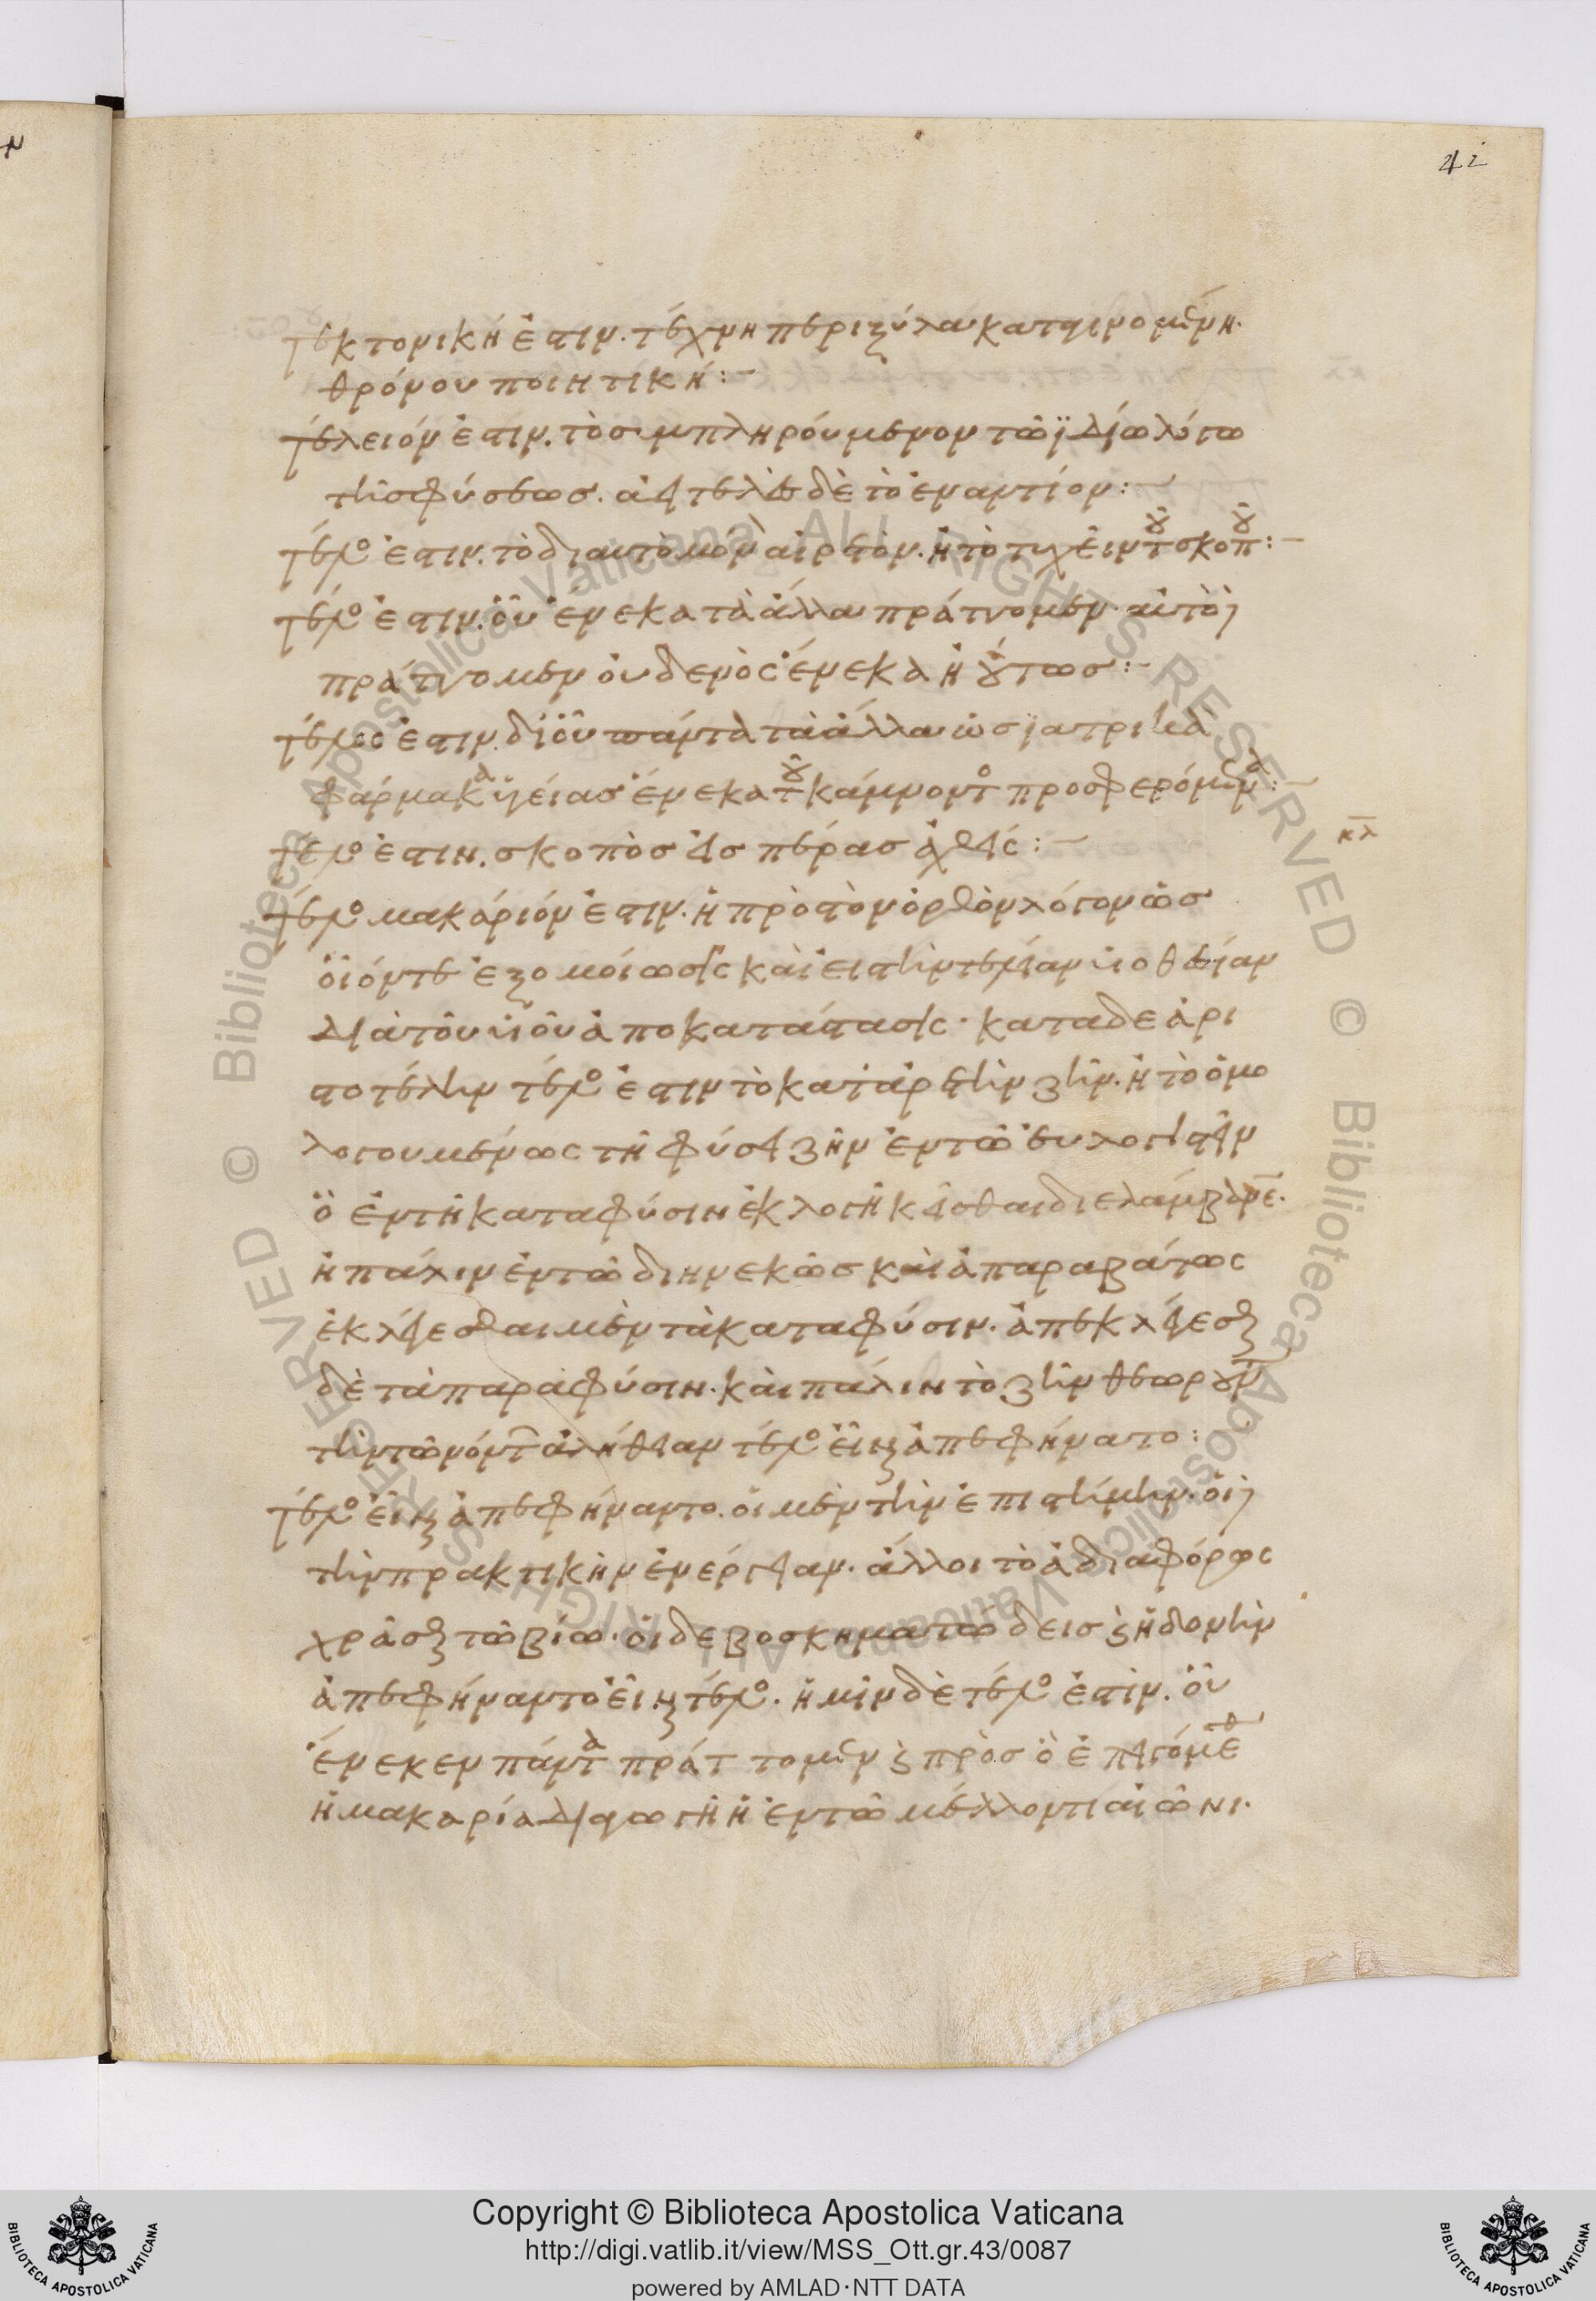 42
τεκτονική ἐστιν. τέχνη περὶ ξύλα καταγινομένη.
θρόνου ποιητική:-
τέλειόν ἐστιν. τὸ συμπληρούμενον τῶ ϊδίω λόγω
τῆς φύσεως. ἀτελὲς δὲ τὸ ἐναντίον:-
τέλο ἐστιν. τὸ δι αυτὸ μόνον αἱρετὸν. ἢ τὸ τυχεῖν τοῦ σκοποῦ:-
τέλο ἐστιν. οὗ ἕνεκα τὰ ἄλλα πράττομεν. αὐτὸ δὲ
πράττομεν οὐδενὸς ἕνεκα ἢ οὕτως:-
τέλος ἐστιν. δι' οὗ πάντα τὰ ἄλλα ὡς ϊατρικὰ
φάρμακα ὑγείας ἕνεκα τοῦ κάμνοντο προσφερόμενα:-
τέλο ἐστιν. σκοπὸς εἰς πέρας ἀχθείς:-
κλ
τέλο μακάριόν ἐστιν. ἡ πρὸς τὸν ὀρθὸν λόγον ὡς
οἷόν τε ἐξομοίωσις καὶ εἰς τὴν τελείαν υἱοθεσίαν
διὰ τοῦ υἱοῦ ἀποκατάστασις. κατα δε ἀρι
στοτέλην τέλο ἐστιν τὸ κατ' ἀρετὴν ζῆν. ἢ τὸ ὁμο
λογουμένως τῆ φύσει ζῆν ἐν τῶ εὐλογιστεῖν
ὃ ἐν τῆ κατα φύσιν ἐκλογῆ κεῖσθαι διελάμβανε.
ἢ πάλιν ἐν τῶ διηνεκῶς καὶ ἀπαραβάτως
ἐκλέγεσθαι μὲν τὰ κατα φύσιν. ἀπεκλέγεσθαι
δὲ τὰ παρα φύσιν. καὶ πάλιν τὸ ζῆν θεωροῦντα
τὴν τῶν ὄντων ἀλήθειαν τέλο εἶναι ἀπεφήνατο:
τέλο εἶναι ἀπεφήναντο. οἱ μὲν τὴν ἐπιστήμην. οἱ δὲ
τὴν πρακτικὴν ἐνέργειαν. ἄλλοι τὸ ἀδιαφόρως
χρᾶσθαι τῶ βίω. οἱ δε βοσκηματώδεις καὶ ἡδονὴν
ἀπεφήναντο εἶναι τέλο. ἡμῖν δὲ τέλο ἐστίν. οὗ
ἕνεκεν πάντα πράττομεν καὶ πρὸς ὃ ἐπειγόμεθα
ἡ μακαρία διαγωγὴ ἡ ἐν τῶ μέλλοντι αἰῶνι.
Copyright © Biblioteca Apostolica Vaticana
http://digi.vatlib.it/view/MSS_Ott.gr.43/0087
powered by AMLAD·NTT DATA